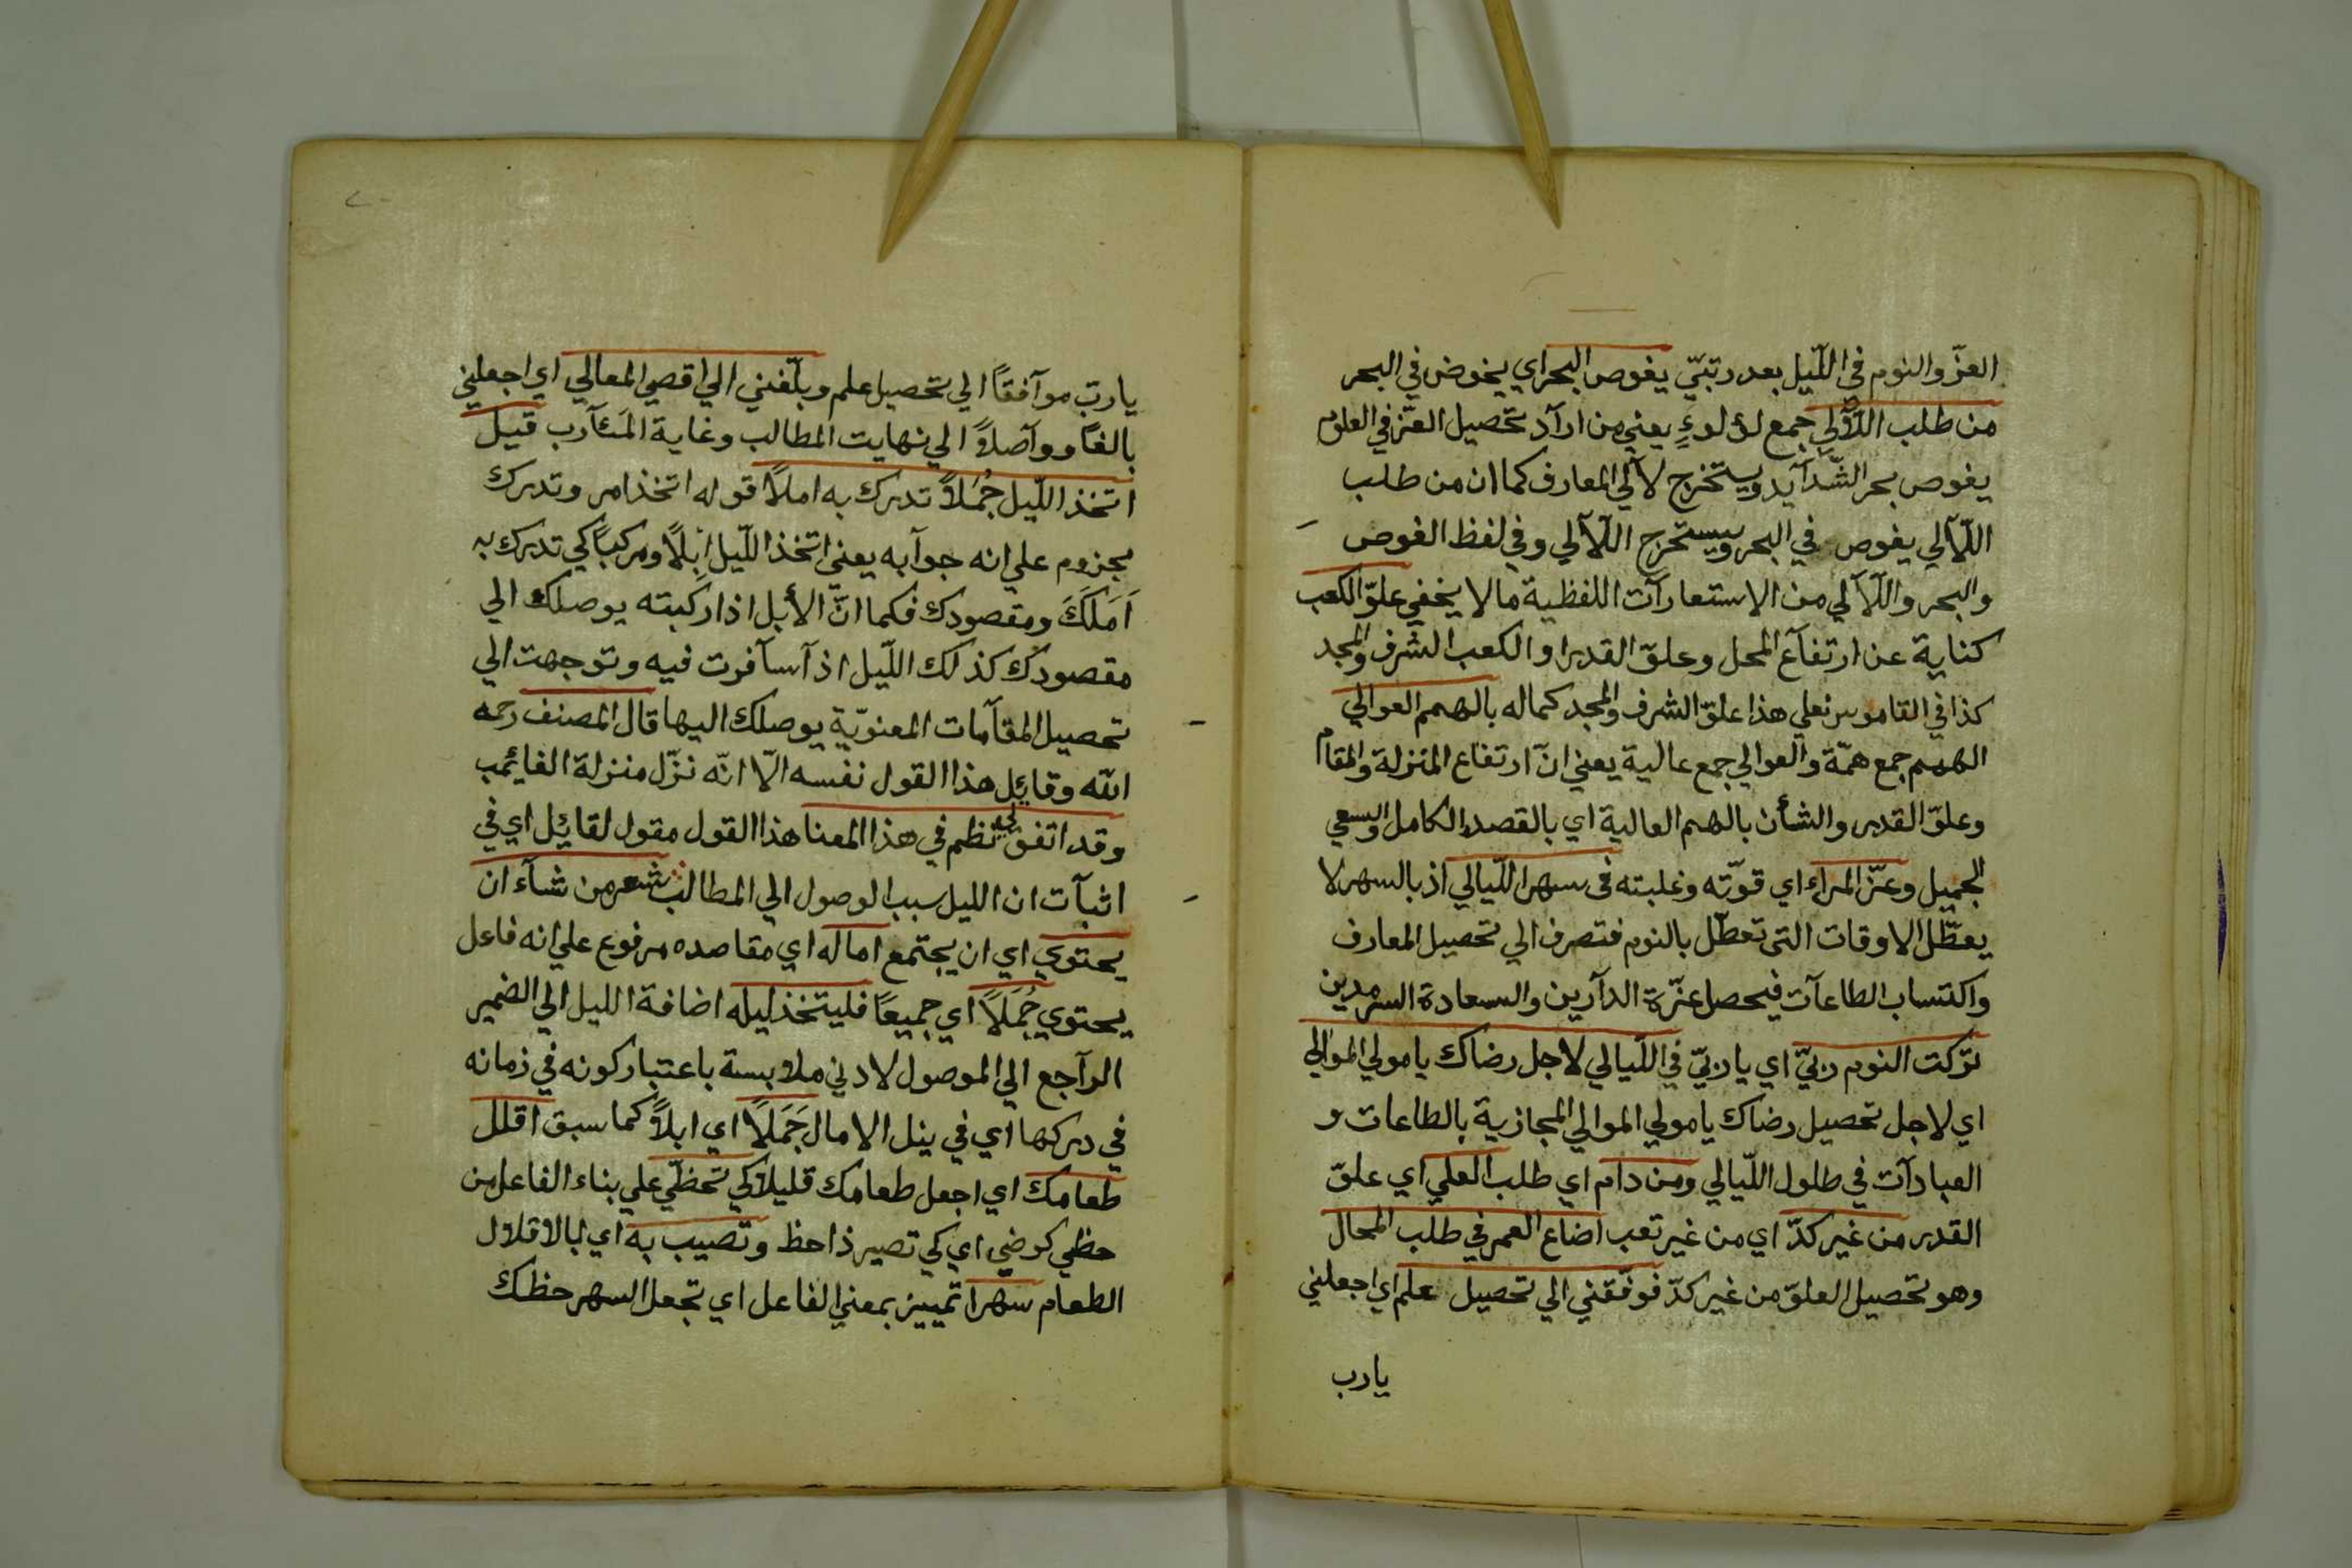 العزّ والنوم في اللّيل بعد رتبّي يغوص البحر اي يخوض في البحر
من طلب اللآلي جمع لؤلوءٍ يعني من ارآد تحصيل العزّ في العلوم
يغوص بحر الشّدآيد ويستخرج لآلي المعارف كما ان من طلب
اللآلي يغوص في البحر ويستخرج اللآلي وفي لفظ الغوص
والبحر واللآلي من الاستعارآت اللفظية مالا يخفي علوّ الكعب
كناية عن ارتفآع المحل وعلوّ القدر او الكعب الشرف والمجد
كذا في القاموس فعلي هذا علوّ الشرف والمجد كماله بالهمم العوالي
الهمم جمع همّة والعوالي جمع عالية يعني انّ ارتفاع المنزلة والمقام
وعلوّ القدر والشأن بالهمم العالية اي بالقصد الكامل والسعي
الجميل وعزّ المراء اي قوّته وغلبته في سهر اللّيالي اذ بالسهر لا
يعطّل الاوقات التى تعطّل بالنوم فتصرف الي تحصيل المعارف
واكتساب الطاعآت فيحصل عزّة الدآرين والسعادة السرمدين
تركت النوم ربيّ اي يا ربيّ في اللّيالي لاجل رضاك يا مولي الموالي
اي لاجل تحصيل رضاك يا مولي الموالي المجازية بالطاعات و
العبادآت في طلول اللّيالي ومن دام اي طلب العلي اي علوّ
القدر من غير كدّ اي من غير تعب اضاع العمر في طلب المحال
وهو تحصيل العلوّ من غير كدّ فوفّقني الي تحصيل علم اي اجعلني
يارب
يا ربّ موآفقاً الي تحصيل علم وبلّغني الي اقصي المعالي اي اجعلني
بالغاً ووآصلاً الي نهايت المطالب وغاية المَئآرب قيل
اتخذ اللّيل جُمَلاً تدرك به املاً قوله اتخذ امر وتدرك
مجزوم علي انه جوآبه يعنى اتخذ اللّيل اِبلاً ومركباً كي تدرك به
اَمَلَكَ ومقصودك فكما انّ الأبل اذا ركبته يوصلك الي
مقصودك كذلك اللّيل اذآ سآفرت فيه وتوجهت الي
تحصيل المقآمات المعنويّة يوصلك اليها قال المصنف رحمه
الله وقايُل هذا القول نفسه الّا انّه نزّل منزلة الغايُب
وقد اتفق لي نظم في هذا المعنا هذا القول مقول لقايُل اي في
اثبآت ان الليل سبب الوصول الي المطالب شعر من شآء ان
يحتوي اي ان يجتمع اماله اي مقاصده مرفوع علي انه فاعل
يحتوي جُمَلاً اي جميعاً فليتخذ ليله اضافة الليل الي الضمير
الرآجع الي الموصول لادني ملابسة باعتبار كونه في زمانه
في دركها اي في ينل الامال جَمَلاً اي ابلاً كما سبق اقلل
طعامك اي اجعل طعامك قليلاً كي تحظّي علي بناء الفاعل من
حظي كرضي اي كي تصير ذاحظ وتصيب به اي بالاقلال
الطعام سهرا تمييز بمعني الفاعل اي تجعل السهر حظك